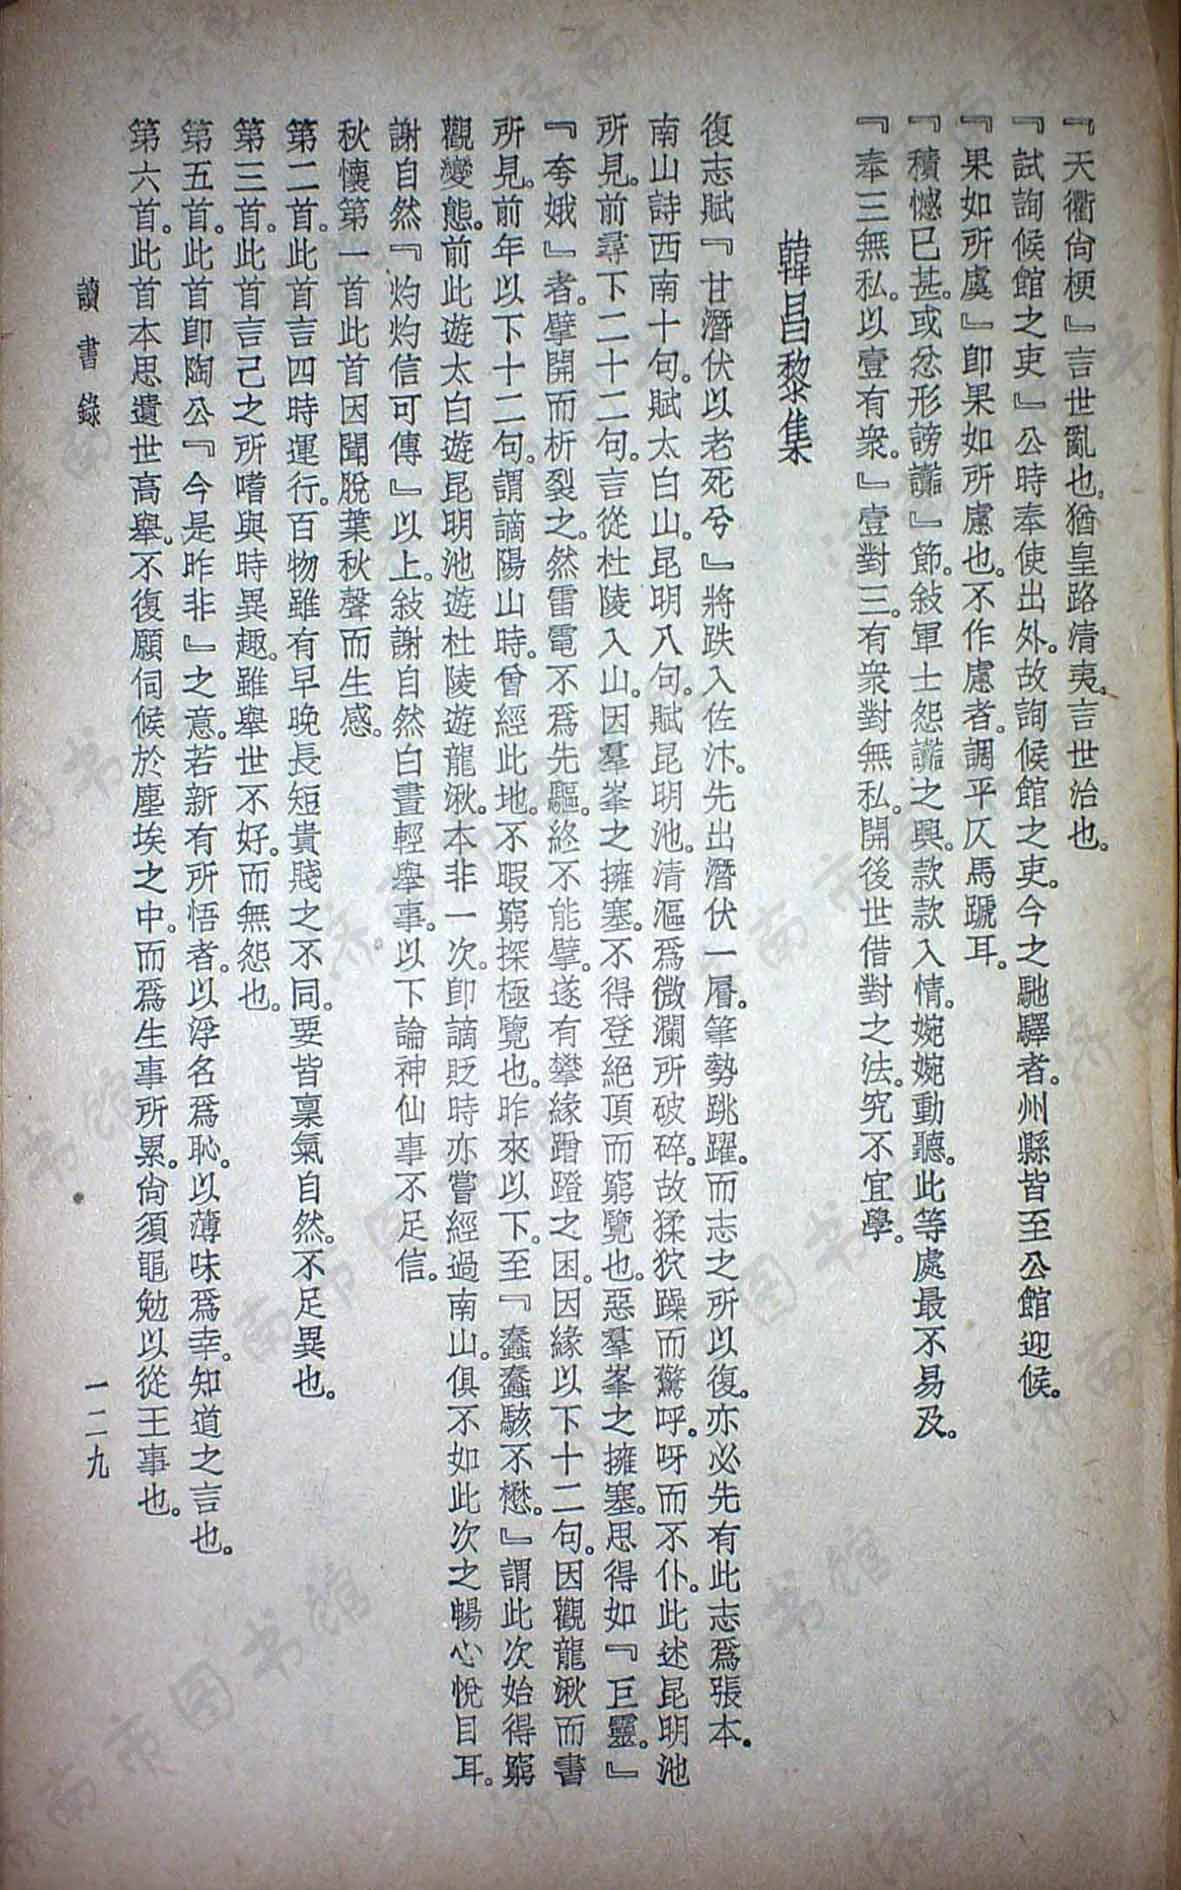 『天衢尙梗』言世亂也。猶皇路清夷。言世治也。
『試詢候館之吏』公時奉使出外。故詢候館之吏。今之馳驛者。州縣皆至公館迎候。
『果如所虞』卽果如所慮也。不作慮者。調平仄馬蹏耳。
『積憾已甚。或忿形謗讟』節。敍軍士怨讟之興。款款入情。婉婉動聽。此等處最不易及。
『奉三無私。以壹有衆。』壹對三。有衆對無私。開後世借對之法。究不宜學。
韓昌黎集
復志賦『甘潛伏以老死兮』將跌入佐汴。先出潛伏一層。筆勢跳躍。而志之所以復。亦必先有此志爲張本。
南山詩西南十句。賦太白山。昆明八句。賦昆明池。清漚爲微瀾所破碎。故猱狖躁而驚呼。呀而不仆。此述昆明池
所見。前尋下二十二句。言從杜陵入山。因羣峯之擁塞。不得登絕頂而窮覽也。惡羣峯之擁塞。思得如『巨靈。』
『夸娥』者。擘開而析裂之。然雷電不爲先驅。終不能擘。遂有攀緣蹭蹬之困。因緣以下十二句。因觀龍湫而書
所見。前年以下十二句。謂謫陽山時。曾經此地。不暇窮探極覽也。昨來以下。至『蠢蠢駭不懋。』謂此次始得窮
觀變態。前此遊太白遊昆明池遊杜陵遊龍湫。本非一次。卽謫貶時亦嘗經過南山。俱不如此次之暢心悅目耳。
謝自然『灼灼信可傳』以上。敍謝自然白晝輕舉事。以下論神仙事不足信。
秋懷第一首此首因聞脫葉秋聲而生感。
第二首。此首言四時運行。百物雖有早晚長短貴賤之不同。要皆稟氣自然。不足異也。
第三首。此首言己之所嗜與時異趣。雖舉世不好。而無怨也。
第五首。此首卽陶公『今是昨非』之意。若新有所悟者。以浮名爲恥。以薄味爲幸。知道之言也。
第六首。此首本思遺世高舉。不復願伺候於塵埃之中。而爲生事所累。尙須黽勉以從王事也。
讀書錄
一二九